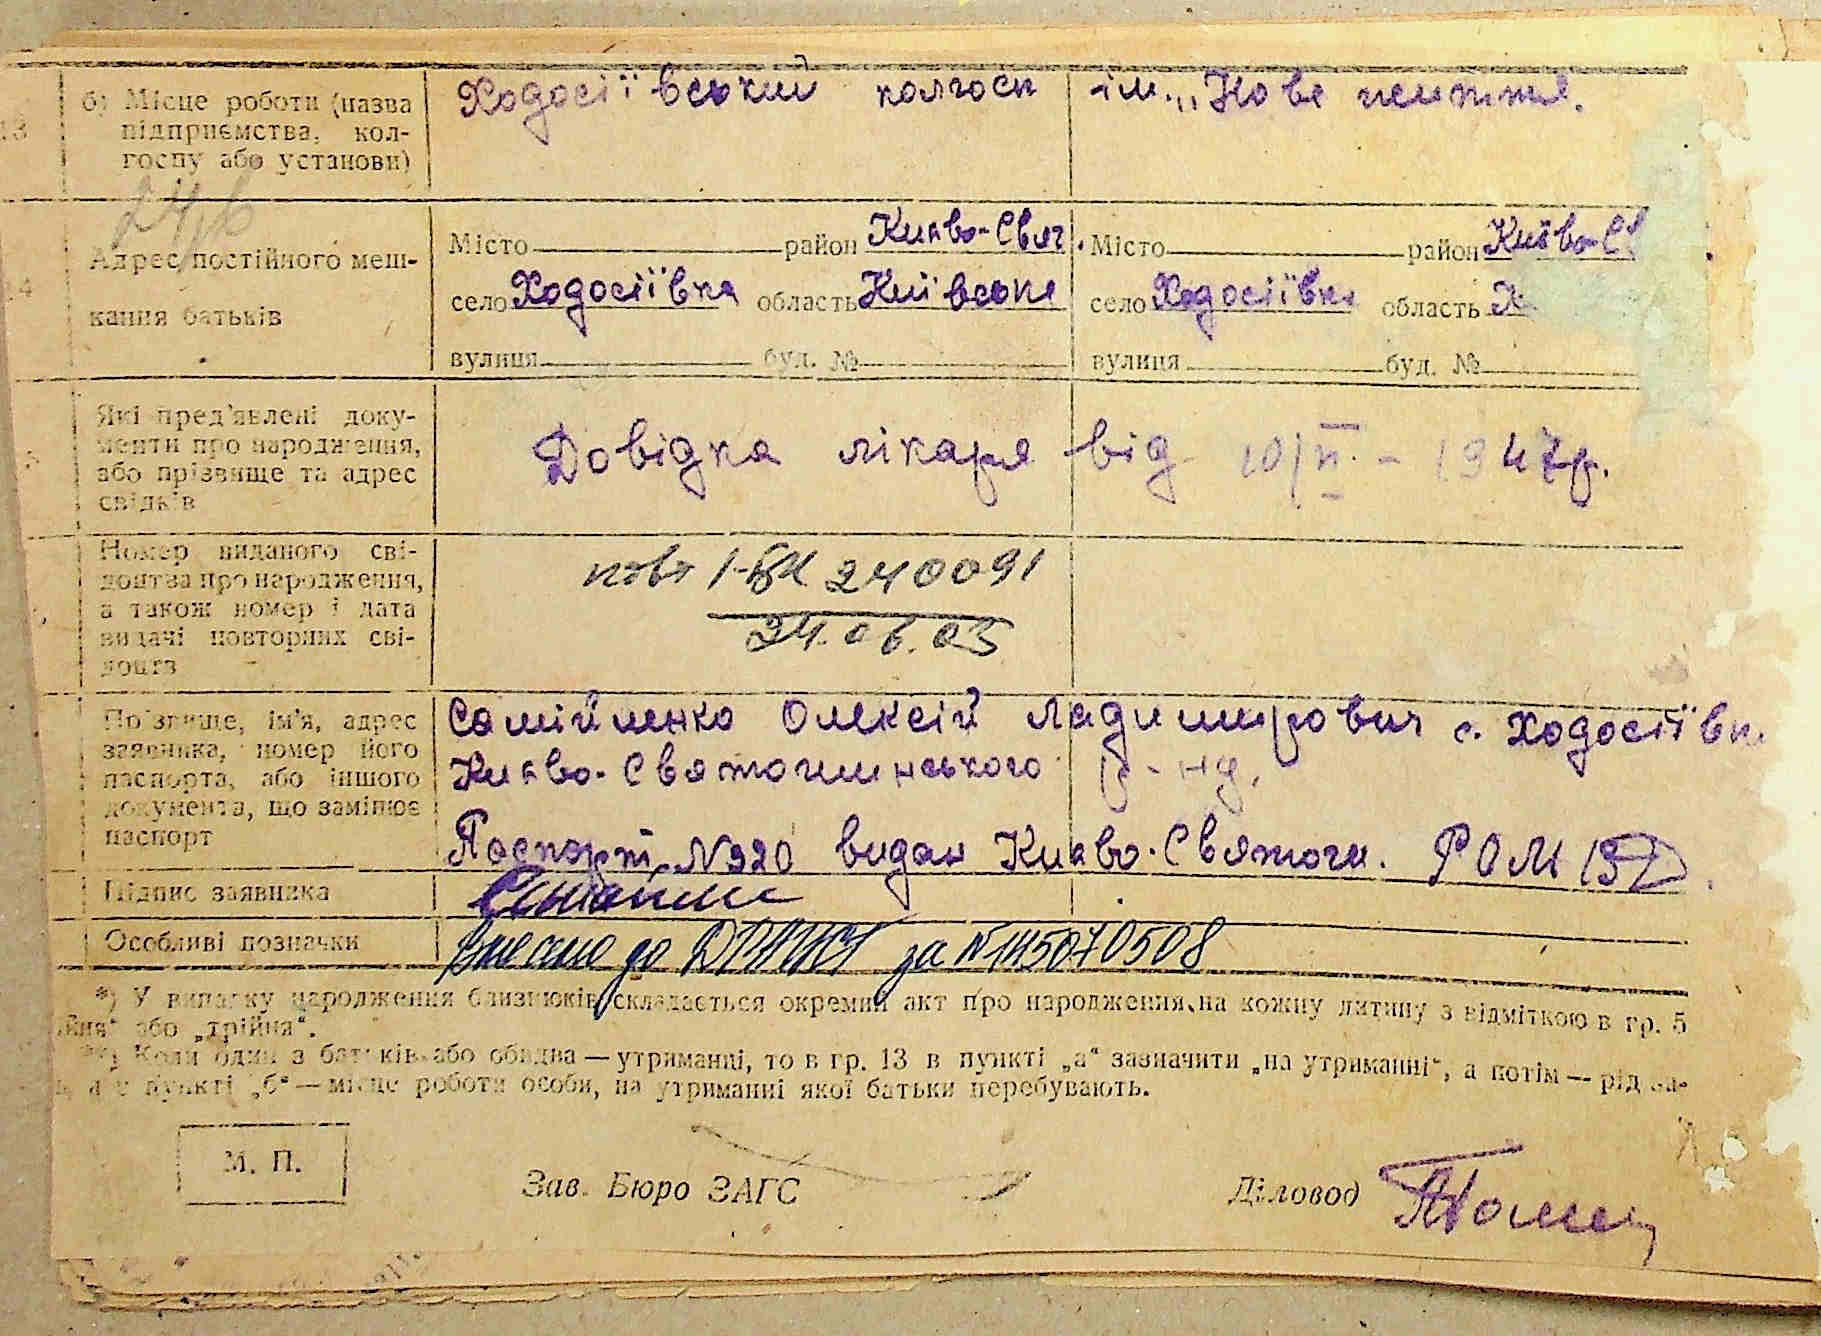 13 б) Місце роботи (назва підприємства, колгоспу або установи) Ходосіївський колгосп ім. „Нове життя.
Адрес постійного мешкання батьків
Місто район Києво-Свят. Місто район Київо-Св
село Ходосіївка область Київська село Ходосіївка область К
вулиця буд. № вулиця буд. №
Які пред'явлені документи про народження, або прізвище та адрес свідків
Довідка лікаря від 10/VI - 1947р.
Номер виданого свідоцтва про народження, а також номер і дата видачі повторних свідоцтв
повт І-БК 240091
24.06.03
Прізвище, ім'я, адрес заявника, номер його паспорта, або іншого документа, що замінює паспорт
Самійленко Олексій Ладимирович с. Ходосіївк
Києво-Святошинського р-нд.
Паспорт №320 видан Києво-Святош. РОМ
Підпис заявника
Особливі позначки Внесено до ДРАЦСГ за №1145070508
*) У випадку народження близнюків складається окремий акт про народження на кожну дитину з відміткою в гр. 5
ійня“ або „трійня“.
**) Коли один з батьків або обидва — утриманці, то в гр. 13 в пункті „а“ зазначити „на утриманні“, а потім — рід за-
а в пункті „б“ — місце роботи особи, на утриманні якої батьки перебувають.
М. П.
Зав. Бюро ЗАГС Діловод